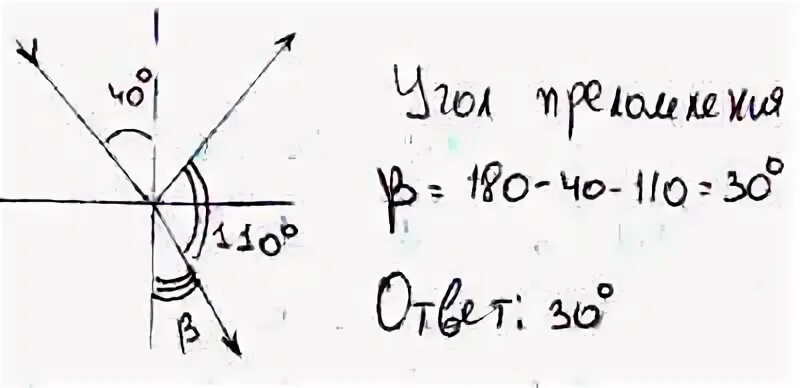 40°
110°
β
Угол преломления
β = 180 - 40 - 110 = 30°
Ответ: 30°